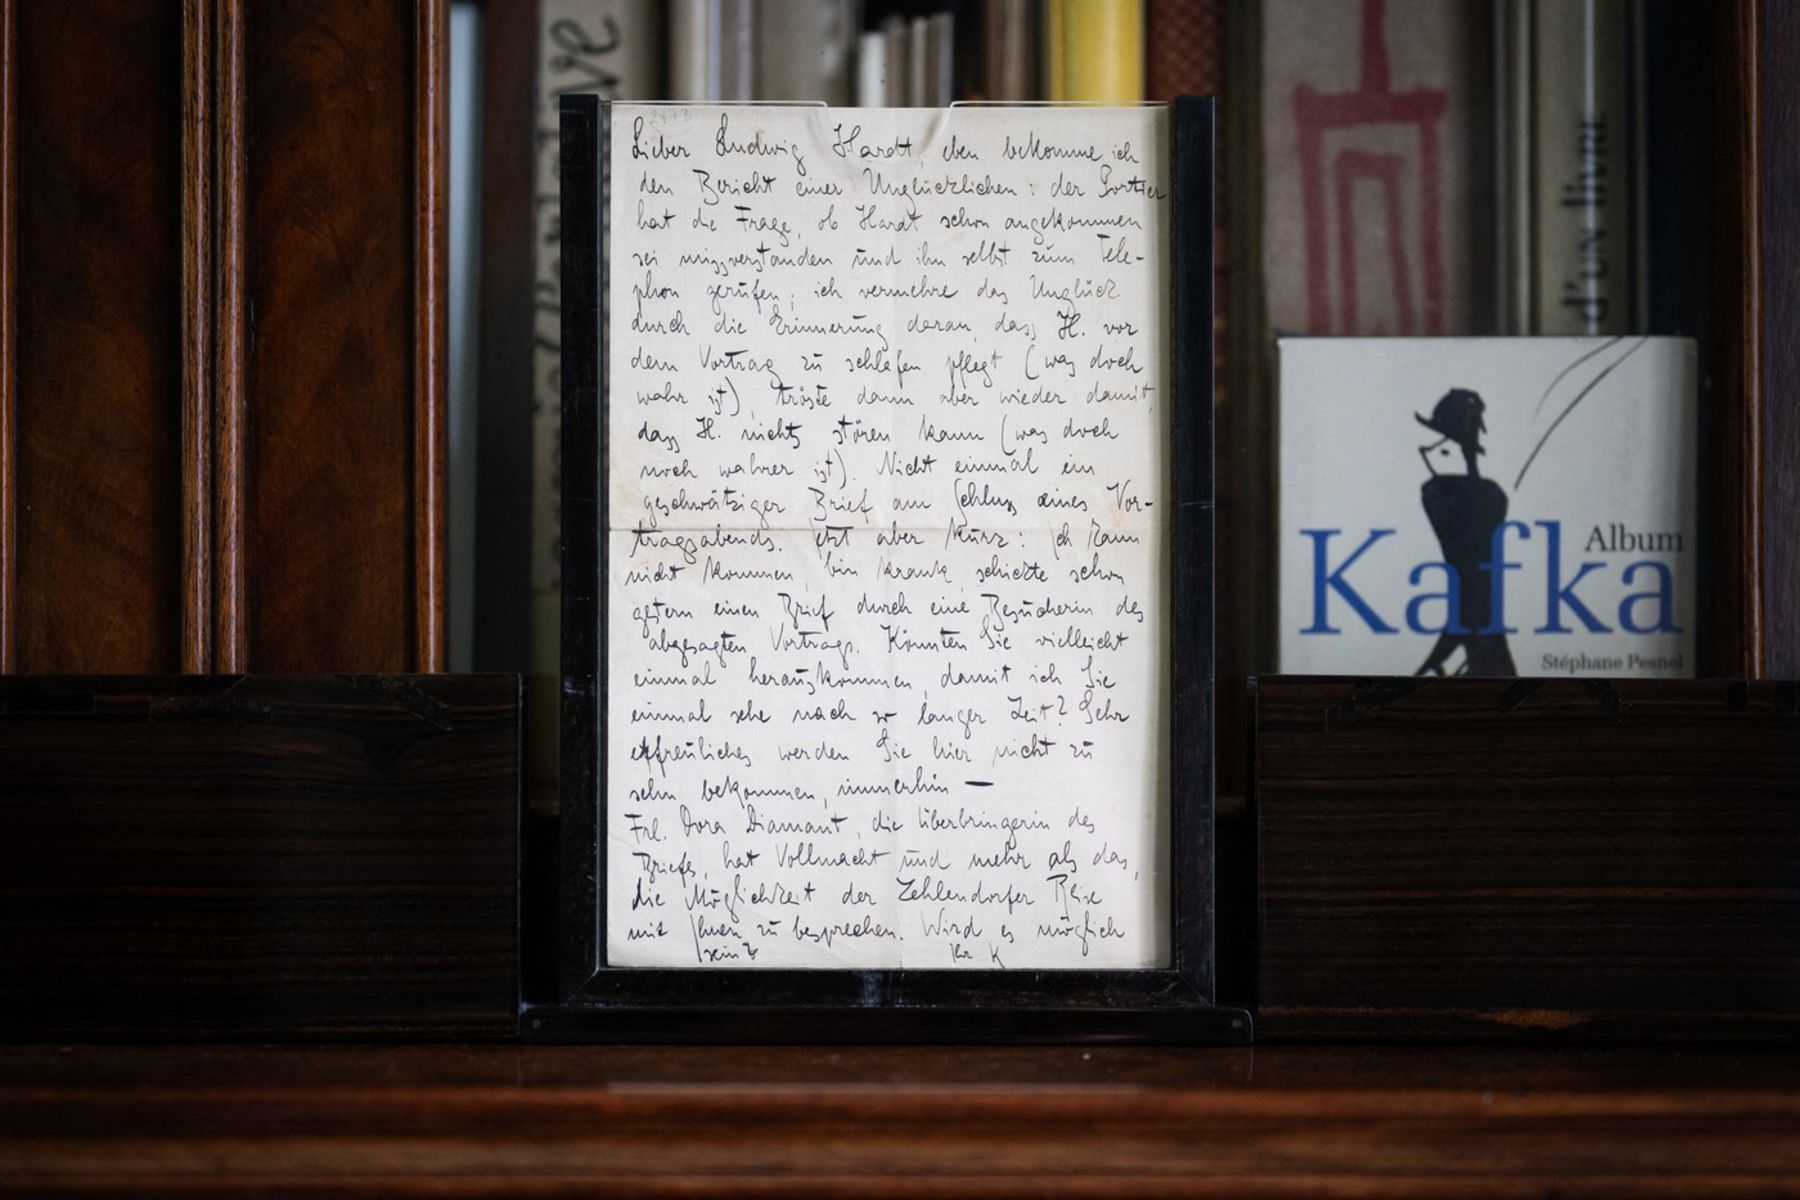 2473
Lieber Ludwig Hardt, eben bekomme ich
den Bericht einer Unglücklichen: der Portier
hat die Frage, ob Hardt schon angekommen
sei missverstanden und ihn selbst zum Tele-
phon gerufen; ich vermehre das Unglück
durch die Erinnerung daran, dass H. vor
dem Vortrag zu schlafen pflegt (was doch
wahr ist), tröste dann aber wieder damit,
dass H. nichts stören kann (was doch
noch wahrer ist). Nicht einmal ein
geschwätziger Brief am Schluss eines Vor-
tragsabends. Jetzt aber kurz: Ich kann
nicht kommen, bin krank, schickte schon
gestern einen Brief durch eine Besucherin des
abgesagten Vortrags. Könnten Sie vielleicht
einmal herauskommen, damit ich Sie
einmal sehe nach so langer Zeit? Sehr
erfreuliches werden Sie hier nicht zu
sehn bekommen, immerhin —
Frl. Dora Diamant, die Überbringerin des
Briefes, hat Vollmacht und mehr als das,
die Möglichkeit der Zehlendorfer Reise
mit Ihnen zu besprechen. Wird es möglich
sein?
Ihr K
d'un livre
Album
Kafka
Stéphane Pesnel